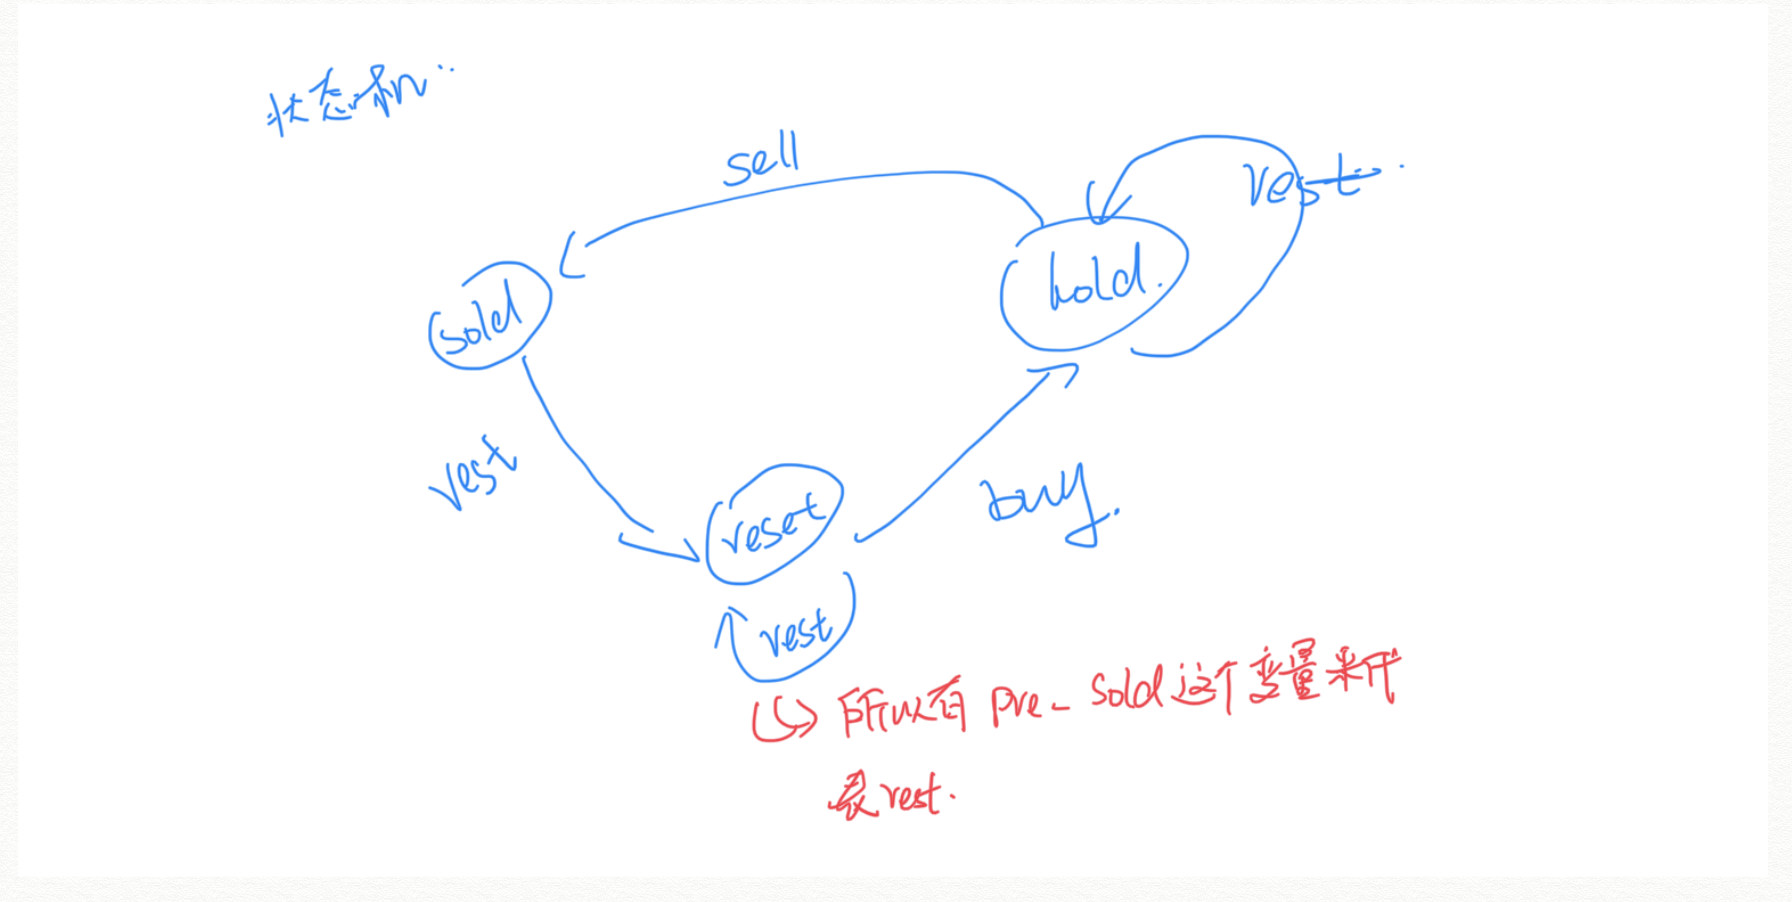 状态机..
sell
rest.
hold.
sold
rest
reset
buy.
rest
所以有 pre_sold这个变量来代
表rest.